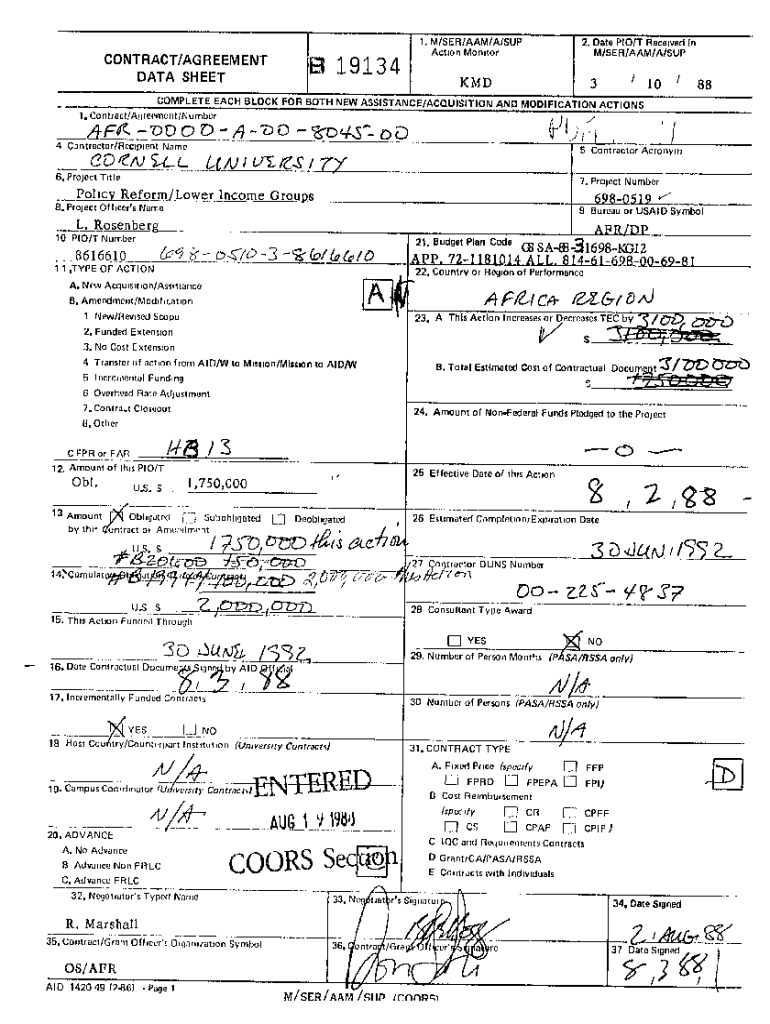 CONTRACT/AGREEMENT
DATA SHEET
B 19134
1. M/SER/AAM/A/SUP
Action Monitor
KMD
2. Date PIO/T Received in
M/SER/AAM/A/SUP
3 / 10 / 88
COMPLETE EACH BLOCK FOR BOTH NEW ASSISTANCE/ACQUISITION AND MODIFICATION ACTIONS
1. Contract/Agreement/Number
AFR-0000-A-00-8045-00
4 Contractor/Recipient Name
CORNELL UNIVERSITY
5 Contractor Acronym
6. Project Title
Policy Reform/Lower Income Groups
7. Project Number
698-0519
8. Project Officer's Name
L. Rosenberg
9 Bureau or USAID Symbol
AFR/DP
10 PIO/T Number
8616610 698-0510-3-8616610
21. Budget Plan Code GSSA-88-31698-KG12
APP. 72-1181014 ALL. 814-61-698-00-69-81
11. TYPE OF ACTION
A. New Acquisition/Assistance
B. Amendment/Modification
1 New/Revised Scope
2. Funded Extension
3. No Cost Extension
4 Transfer of action from AID/W to Mission/Mission to AID/W
5 Incremental Funding
6 Overhead Rate Adjustment
7. Contract Closeout
8. Other
A
C FPR or FAR HB 13
22. Country or Region of Performance
AFRICA REGION
23. A This Action Increases or Decreases TEC by 3100,000
$ 3100,000
B. Total Estimated Cost of Contractual Document 3100000
$ 1750000
24. Amount of Non-Federal Funds Pledged to the Project
— 0 —
12. Amount of this PIO/T
Obl. U.S. $ 1,750,000
25 Effective Date of this Action
8, 2, 88 -
13 Amount Obligated Subobligated Deobligated
by this Contract or Amendment
U.S. $ 1750,000 this action
26 Estimated Completion/Expiration Date
30 JUN 1992
14. Cumulative
U.S. $ 2,000,000
27 Contractor DUNS Number
00-225-4837
15. This Action Funded Through
30 JUNE 1992
28 Consultant Type Award
YES NO
16. Date Contractual Documents Signed by AID Official
8, 3, 88
29. Number of Person Months (PASA/RSSA only)
N/A
17. Incrementally Funded Contracts
YES NO
30 Number of Persons (PASA/RSSA only)
N/A
18 Host Country/Counterpart Institution (University Contracts)
N/A
19. Campus Coordinator (University Contracts)
N/A
ENTERED
AUG 19 1988
COORS Section
20. ADVANCE
A. No Advance
B Advance Non FRLC
C. Advance FRLC
31. CONTRACT TYPE
A. Fixed Price (specify FFP
FPRD FPEPA FPI)
B Cost Reimbursement
(specify CR CPFF
CS CPAF CPIF)
C IQC and Requirements Contracts
D Grant/CA/PASA/RSSA
E Contracts with Individuals
D
32. Negotiator's Typed Name
R. Marshall
33. Negotiator's Signature
34. Date Signed
2 AUG 88
35. Contract/Grant Officer's Organization Symbol
OS/AFR
36. Contract/Grant Officer's Signature
37 Date Signed
8, 3 88
AID 1420-49 (2-86) - Page 1
M/SER/AAM/SUP (COORS)